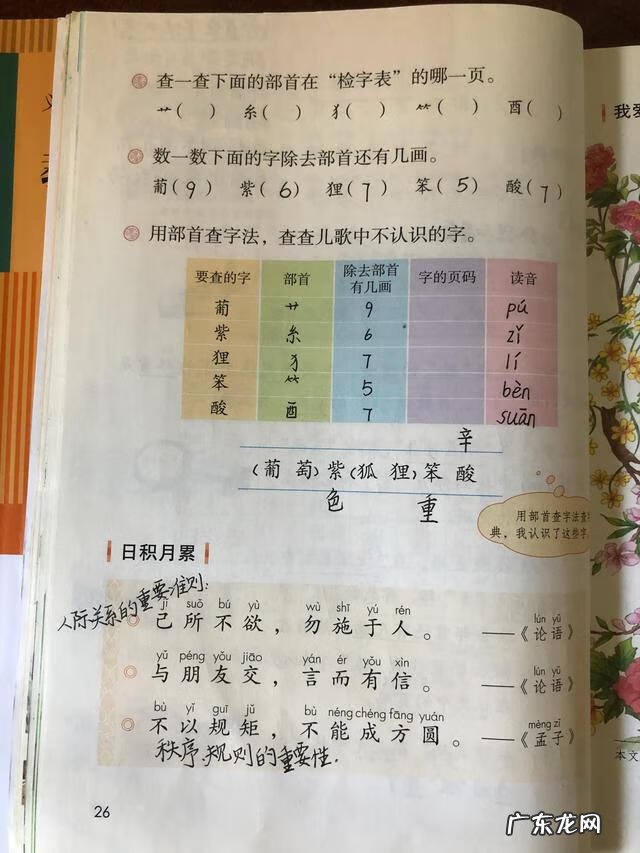 查一查下面的部首在“检字表”的哪一页。
艹( ) 糸( ) 犭( ) ⺮( ) 酉( )
数一数下面的字除去部首还有几画。
葡(9) 紫(6) 狸(7) 笨(5) 酸(7)
用部首查字法，查查儿歌中不认识的字。
要查的字 部首 除去部首有几画 字的页码 读音
葡 艹 9 pú
紫 糸 6 zǐ
狸 犭 7 lí
笨 ⺮ 5 bèn
酸 酉 7 suān
辛
(葡萄)紫(狐狸)笨 酸
色 重
用部首查字法查
典，我认识了这些字
日积月累
人际关系的重要准则：
jǐ suǒ bú yù wù shī yú rén
己所不欲，勿施于人。 ——《论语》 lún yǔ
yǔ péng yǒu jiāo yán ér yǒu xìn
与朋友交，言而有信。 ——《论语》 lún yǔ
bù yǐ guī jǔ bù néng chéng fāng yuán
不以规矩，不能成方圆。 ——《孟子》 mèng zǐ
秩序,规则的重要性.
26
我爱
本文
广东龙网